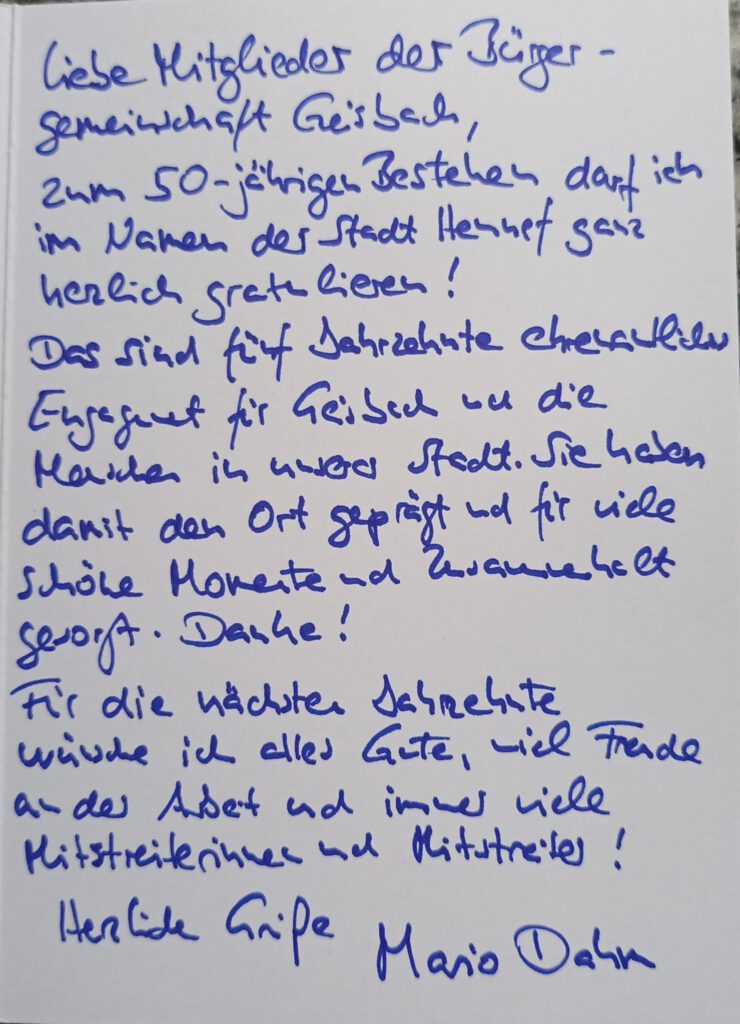 Liebe Mitglieder der Bürger-
gemeinschaft Geisbach,
zum 50-jährigen Bestehen darf ich
im Namen der Stadt Hennef ganz
herzlich gratulieren!
Das sind fünf Jahrzehnte ehrenamtliches
Engagement für Geisbach und die
Menschen in unserer Stadt. Sie haben
damit den Ort geprägt und für viele
schöne Momente und Zusammenhalt
gesorgt. Danke!
Für die nächsten Jahrzehnte
wünsche ich alles Gute, viel Freude
an der Arbeit und immer viele
Mitstreiterinnen und Mitstreiter!
Herzliche Grüße
Mario Dahm